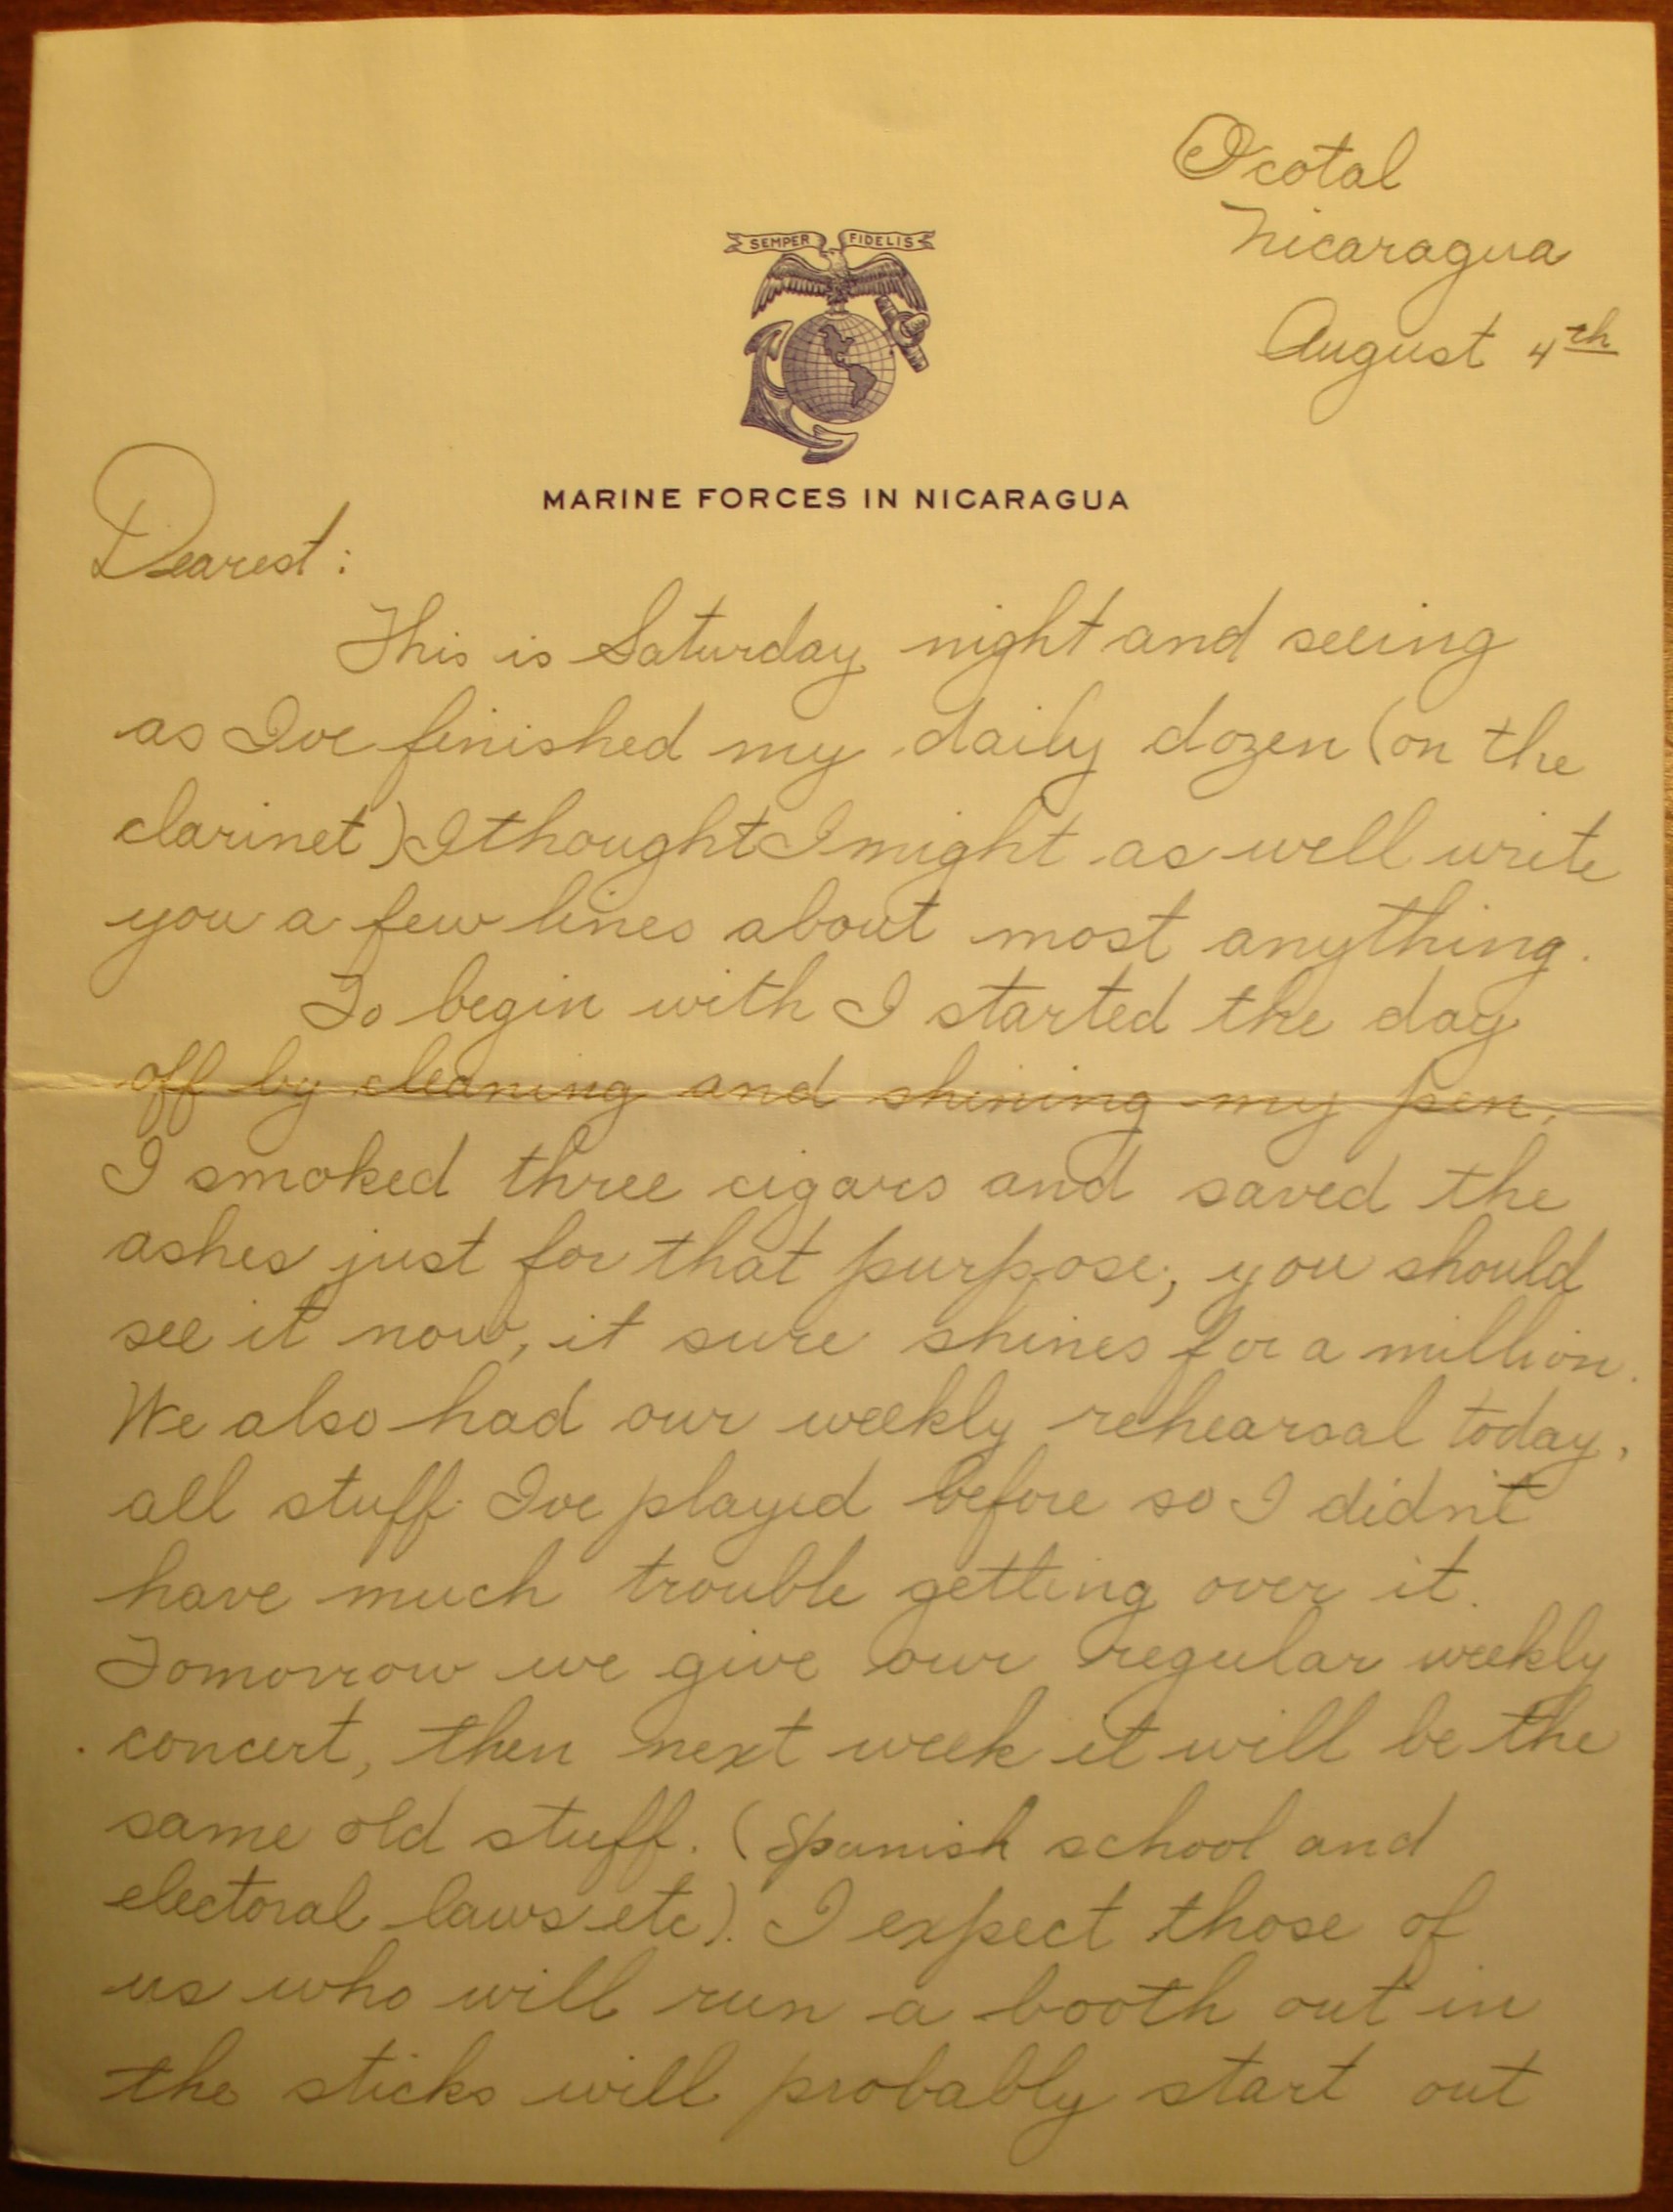 Ocotal
Nicaragua
August 4th
SEMPER FIDELIS
MARINE FORCES IN NICARAGUA
Dearest:
This is Saturday night and seeing
as Ive finished my daily dozen (on the
clarinet) I thought I might as well write
you a few lines about most anything.
To begin with I started the day
off by cleaning and shining my pen,
I smoked three cigars and saved the
ashes just for that purpose; you should
see it now, it sure shines for a million.
We also had our weekly rehearsal today,
all stuff Ive played before so I didn't
have much trouble getting over it.
Tomorrow we give our regular weekly
concert, then next week it will be the
same old stuff. (Spanish school and
electoral laws etc). I expect those of
us who will run a booth out in
the sticks will probably start out